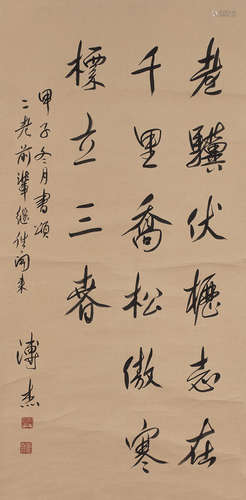 老骥伏枥志在
千里乔松傲寒
标立三春
甲子冬月书颂
二老前辈继往开来
溥杰